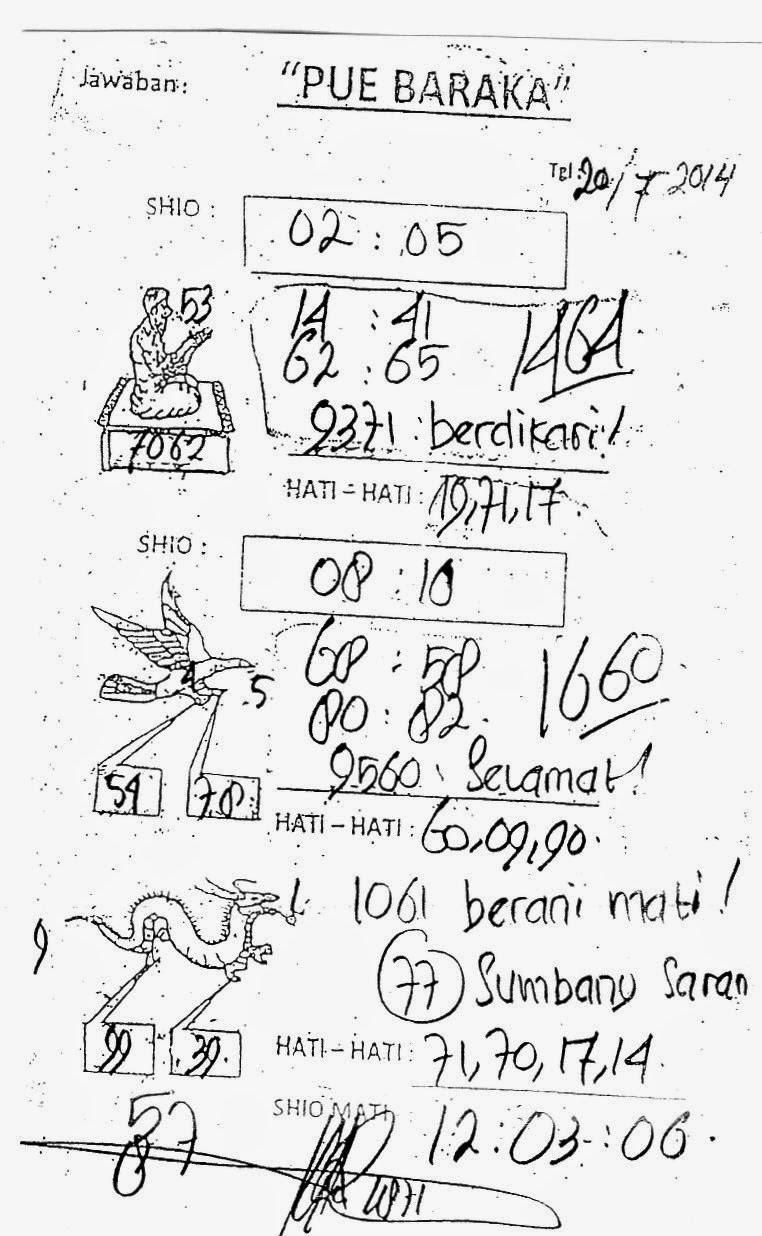 Jawaban: "PUE BARAKA"
Tgl: 20/7 2014
SHIO : 02 : 05
53
14 : 41
62 : 65 1464
7062
9371 : berdikari!
HATI - HATI : 19,71,17.
SHIO : 08 : 10
68 : 58
5
80 : 82. 1660
54 78
9560 : Selamat!
HATI - HATI : 60,09,90.
1 1061 berani mati!
9
77 Sumbang Saran
99 39.
HATI - HATI : 71,70,17,14.
SHIO MATI 12 : 03 : 06.
57
8